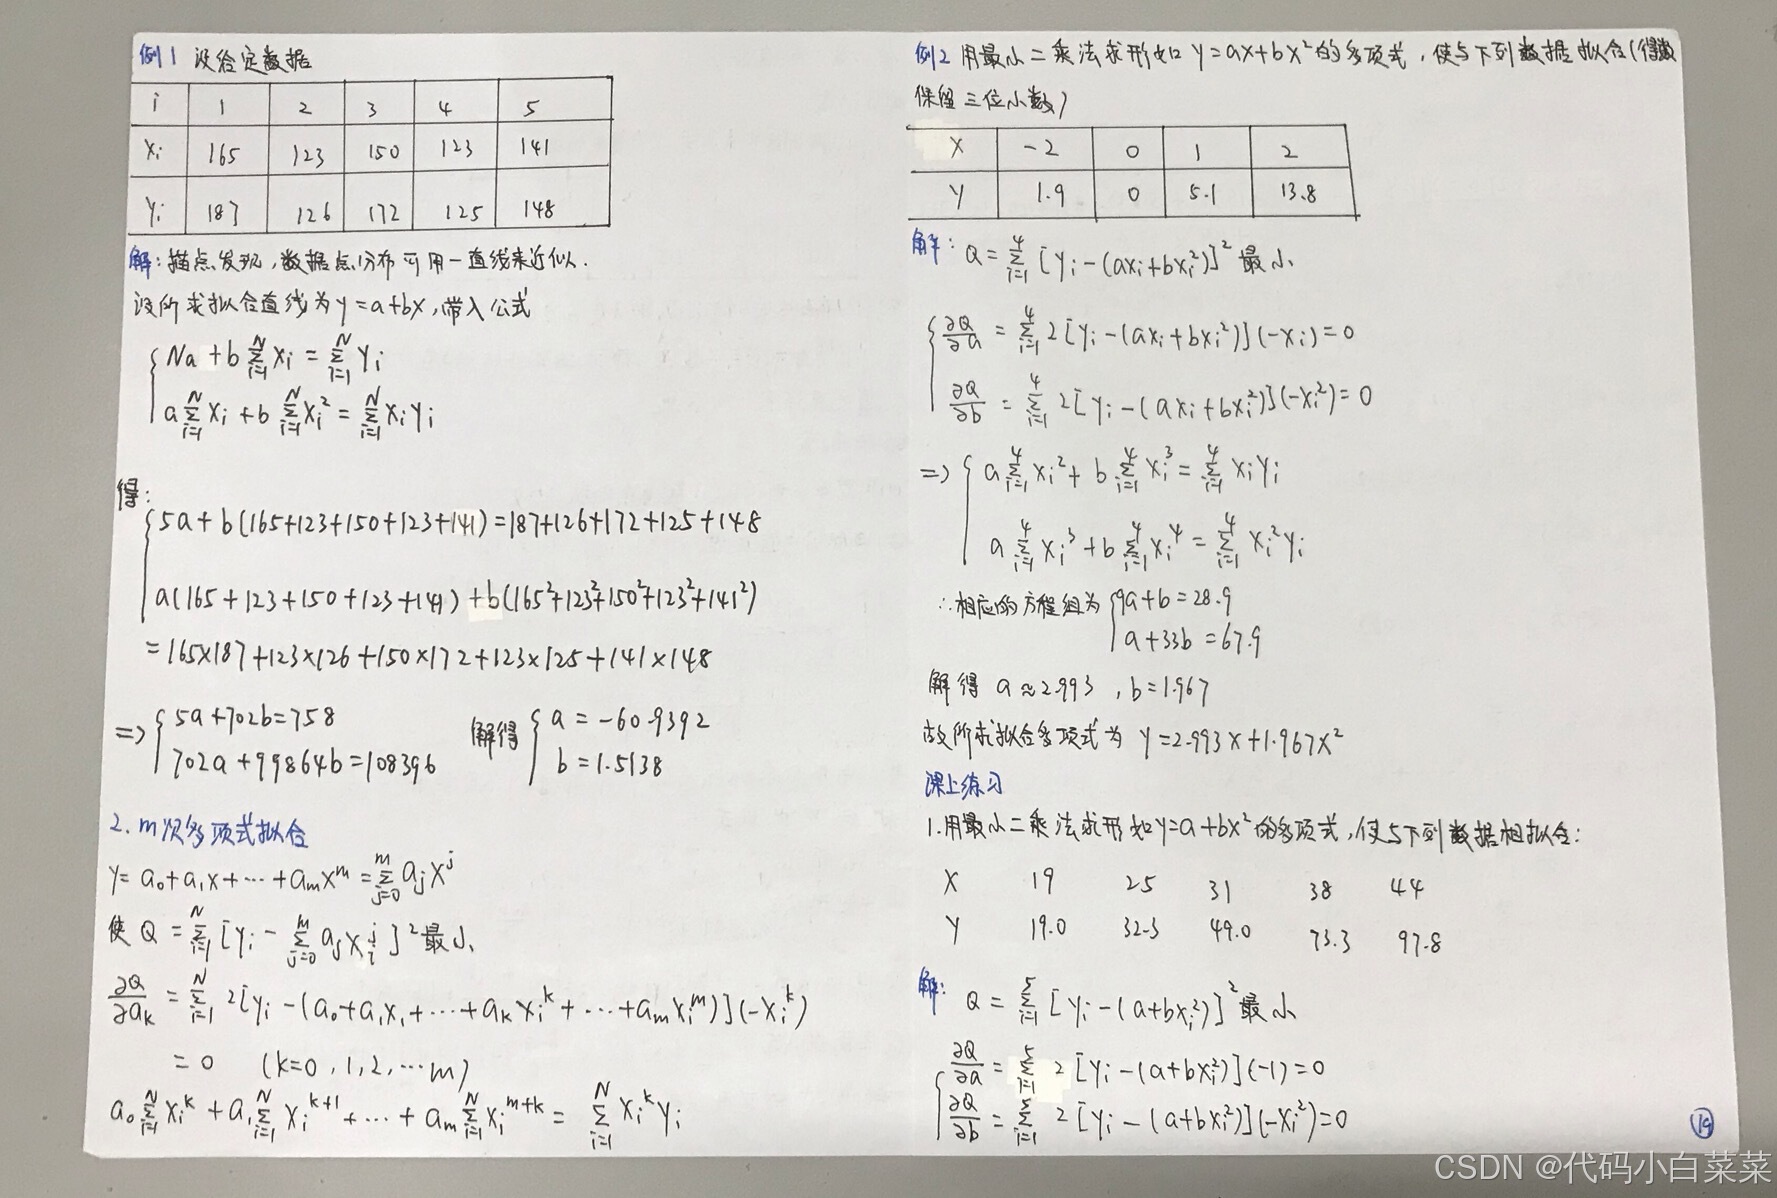 例1 设给定数据
i 1 2 3 4 5
xᵢ 165 123 150 123 141
yᵢ 187 126 172 125 148
解:描点发现,数据点分布可用一直线来近似.
设所求拟合直线为y=a+bx,带入公式
{ Na+b∑_{i=1}^{N}xᵢ=∑_{i=1}^{N}yᵢ
a∑_{i=1}^{N}xᵢ+b∑_{i=1}^{N}xᵢ²=∑_{i=1}^{N}xᵢyᵢ
得:
{ 5a+b(165+123+150+123+141)=187+126+172+125+148
a(165+123+150+123+141)+b(165²+123²+150²+123²+141²)
=165×187+123×126+150×172+123×125+141×148
=> { 5a+702b=758
702a+99864b=108396
解得 { a=-60.9392
b=1.5138
2.m次多项式拟合
y=a₀+a₁x+⋯+aₘxᵐ=∑_{j=0}^{m}aⱼxʲ
使Q=∑_{i=1}^{N}[yᵢ-∑_{j=0}^{m}aⱼxᵢʲ]²最小
∂Q/∂aₖ=∑_{i=1}^{N}2[yᵢ-(a₀+a₁xᵢ+⋯+aₖxᵢᵏ+⋯+aₘxᵢᵐ)](-xᵢᵏ)
=0 (k=0,1,2,⋯m)
a₀∑_{i=1}^{N}xᵢᵏ+a₁∑_{i=1}^{N}xᵢᵏ⁺¹+⋯+aₘ∑_{i=1}^{N}xᵢᵐ⁺ᵏ=∑_{i=1}^{N}xᵢᵏyᵢ
例2 用最小二乘法求形如y=ax+bx²的多项式,使与下列数据拟合(得数
保留三位小数)
x -2 0 1 2
y 1.9 0 5.1 13.8
解: Q=∑_{i=1}^{4}[yᵢ-(axᵢ+bxᵢ²)]²最小
{ ∂Q/∂a=∑_{i=1}^{4}2[yᵢ-(axᵢ+bxᵢ²)](-xᵢ)=0
∂Q/∂b=∑_{i=1}^{4}2[yᵢ-(axᵢ+bxᵢ²)](-xᵢ²)=0
=> { a∑_{i=1}^{4}xᵢ²+b∑_{i=1}^{4}xᵢ³=∑_{i=1}^{4}xᵢyᵢ
a∑_{i=1}^{4}xᵢ³+b∑_{i=1}^{4}xᵢ⁴=∑_{i=1}^{4}xᵢ²yᵢ
∴相应的方程组为 { 9a+b=28.9
a+33b=67.9
解得 a≈2.993 ,b=1.967
故所求拟合多项式为 y=2.993x+1.967x²
课上练习
1.用最小二乘法求形如y=a+bx²的多项式,使与下列数据相拟合:
x 19 25 31 38 44
y 19.0 32.3 49.0 73.3 97.8
解: Q=∑_{i=1}^{5}[yᵢ-(a+bxᵢ²)]²最小
{ ∂Q/∂a=∑_{i=1}^{5}2[yᵢ-(a+bxᵢ²)](-1)=0
∂Q/∂b=∑_{i=1}^{5}2[yᵢ-(a+bxᵢ²)](-xᵢ²)=0
⑲
CSDN @代码小白菜菜